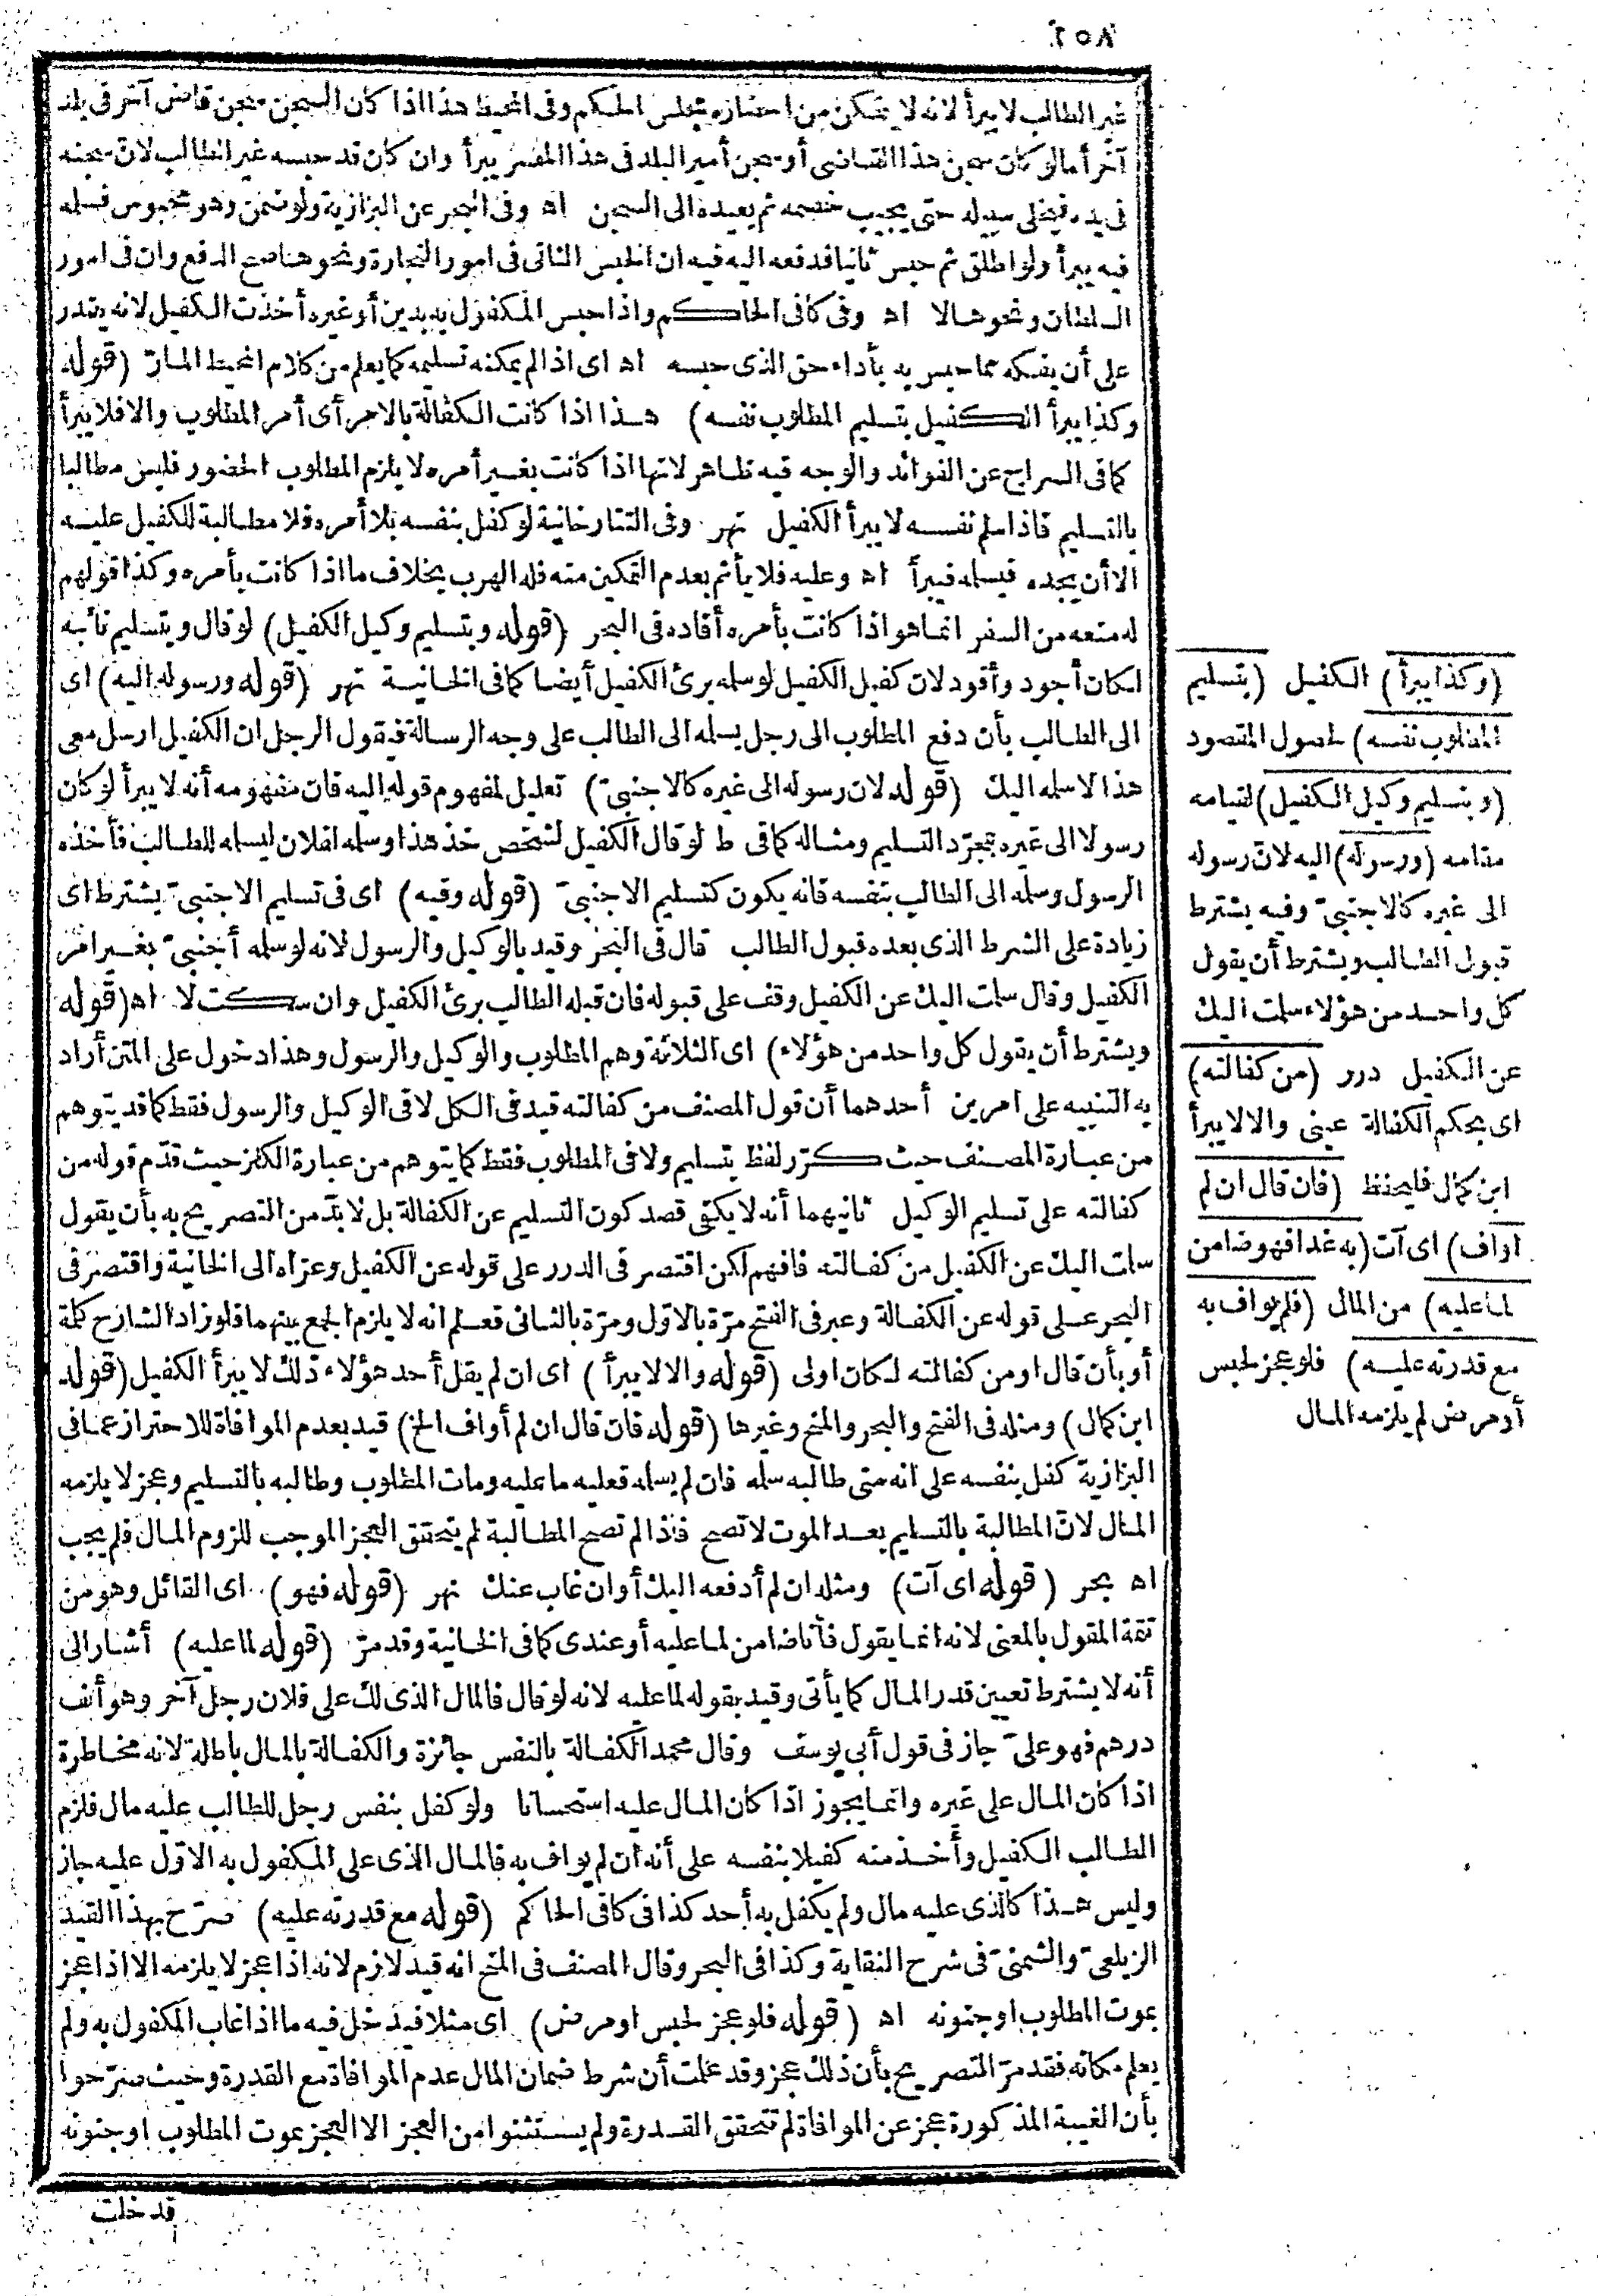 ٢٥٨
غير الطالب لا يبرأ لانه لا يتمكن من احضاره مجلس الحكم وفى المحيط هذا اذا كان السجن سجن قاض آخر فى بلد
آخر أما لو كان سجن هذا القاضى أو سجن أمير البلد فى هذا المصر يبرأ وان كان قد حبسه غير الطالب لانّ سجنه
فى يده فيخلى سبيله حتى يجيب خصمه ثم يعيده الى السجن اه وفى البحر عن البزازية ولو ضمن وهو محبوس فسلمه
فيه يبرأ ولو اطلق ثم حبس ثانيا فدفعه اليه فيه ان الحبس الثانى فى امور التجارة ونحوها صح الدفع وان فى امور
السلطان ونحوها لا اه وفى كافى الحاكم واذا حبس المكفول به بدين أو غيره أخذت الكفيل لانه يقدر
على أن يفتكه مما حبس به بأداء حق الذى حبسه اه اى اذا لم يمكنه تسليمه كما يعلم من كلام المحيط المارّ (قوله
وكذا يبرأ الكفيل بتسليم المطلوب نفسه) هذا اذا كانت الكفالة بالامر أى أمر المطلوب والا فلا يبرأ
كما فى السراج عن الفوائد والوجه فيه ظاهر لانها اذا كانت بغير أمره لا يلزم المطلوب الحضور فليس مطالبا
بالتسليم فاذا سلم نفسه لا يبرأ الكفيل نهر وفى التتارخانية لو كفل بنفسه بلا أمره فلا مطالبة للكفيل عليه
الا أن يجده فيسلمه فيبرأ اه وعليه فلا يأثم بعدم التمكين منه فله الهرب بخلاف ما اذا كانت بأمره وكذا قولهم
له منعه من السفر انما هو اذا كانت بأمره أفاده فى البحر (قوله وبتسليم وكيل الكفيل) لو قال وبتسليم نائبه
لكان أجود وأفود لان كفيل الكفيل لو سلمه برئ الكفيل أيضا كما فى الخانية نهر (قوله ورسوله اليه) اى
الى الطالب بأن دفع المطلوب الى رجل يسلمه الى الطالب على وجه الرسالة فيقول الرجل ان الكفيل ارسل معى
هذا لاسلمه اليك (قوله لان رسوله الى غيره كالاجنبىّ) تعليل لمفهوم قوله اليه فان مفهومه أنه لا يبرأ لو كان
رسولا الى غيره بمجرّد التسليم ومثاله كما فى ط لو قال الكفيل لشخص خذ هذا وسلمه لفلان ليسلمه للطالب فأخذه
الرسول وسلمه الى الطالب بنفسه فانه يكون كتسليم الاجنبىّ (قوله وفيه) اى فى تسليم الاجنبىّ يشترط اى
زيادة على الشرط الذى بعده قبول الطالب قال فى البحر وقيد بالوكيل والرسول لانه لو سلمه أجنبىّ بغير امر
الكفيل وقال سلمت اليك عن الكفيل وقف على قبوله فان قبله الطالب برئ الكفيل وان سكت لا اه (قوله
ويشترط أن يقول كل واحد من هؤلاء) اى الثلاثة وهم المطلوب والوكيل والرسول وهذا دخول على المتن أراد
به التنبيه على امرين أحدهما أن قول المصنف من كفالته قيد فى الكل لا فى الوكيل والرسول فقط كما قد يتوهم
من عبارة المصنف حيث كرّر لفظ بتسليم ولا فى المطلوب فقط كما يتوهم من عبارة الكنز حيث قدّم قوله من
كفالته على تسليم الوكيل ثانيهما أنه لا يكفى قصد كون التسليم عن الكفالة بل لا بدّ من التصريح به بأن يقول
سلمت اليك عن الكفيل من كفالته فافهم لكن اقتصر فى الدرر على قوله عن الكفيل وعزاه الى الخانية واقتصر فى
البحر على قوله عن الكفالة وعبر فى الفتح مرّة بالاوّل ومرّة بالثانى فعلم انه لا يلزم الجمع بينهما فلو زاد الشارح كلمة
أو بأن قال او من كفالته لكان اولى (قوله والا لا يبرأ) اى ان لم يقل أحد هؤلاء ذلك لا يبرأ الكفيل (قوله
ابن كمال) ومثله فى الفتح والبحر والمنح وغيرها (قوله فان قال ان لم أواف الخ) قيد بعدم الموافاة للاحتراز عما فى
البزازية كفل بنفسه على انه متى طالبه سلمه فان لم يسلمه فعليه ما عليه ومات المطلوب وطالبه بالتسليم وعجز لا يلزمه
المال لانّ المطالبة بالتسليم بعد الموت لا تصح فاذا لم تصح المطالبة لم يتحقق العجز الموجب للزوم المال فلم يجب
اه بحر (قوله اى آت) ومثله ان لم أدفعه اليك أو ان غاب عنك نهر (قوله فهو) اى القائل وهو من
تتمة المقول بالمعنى لانه انما يقول فأنا ضامن لما عليه أو عندى كما فى الخانية وقد مرّ (قوله لما عليه) أشار الى
أنه لا يشترط تعيين قدر المال كما يأتى وقيد بقوله لما عليه لانه لو قال فالمال الذى لك على فلان رجل آخر وهو ألف
درهم فهو علىّ جاز فى قول أبى يوسف وقال محمد الكفالة بالنفس جائزة والكفالة بالمال باطلة لانه مخاطرة
اذا كان المال على غيره وانما يجوز اذا كان المال عليه استحسانا ولو كفل بنفس رجل للطالب عليه مال فلزم
الطالب الكفيل وأخذ منه كفيلا بنفسه على أنه ان لم يواف به فالمال الذى على المكفول به الاوّل عليه جاز
وليس هذا كالذى عليه مال ولم يكفل به أحد كذا فى كافى الحاكم (قوله مع قدرته عليه) صرّح بهذا القيد
الزيلعىّ والشمنىّ فى شرح النقاية وكذا فى البحر وقال المصنف فى المنح انه قيد لازم لانه اذا عجز لا يلزمه الا اذا عجز
بموت المطلوب او جنونه اه (قوله فلو عجز لحبس او مرض) اى مثلا فيدخل فيه ما اذا غاب المكفول به ولم
يعلم مكانه فقد مرّ التصريح بأن ذلك عجز وقد علمت أن شرط ضمان المال عدم الموافاة مع القدرة وحيث صرّحوا
بأن الغيبة المذكورة عجز عن الموافاة لم تتحقق القدرة ولم يستثنوا من العجز الا العجز بموت المطلوب او جنونه
قد خلت
(وكذا يبرأ) الكفيل (بتسليم
المطلوب نفسه) لحصول المقصود
(وبتسليم وكيل الكفيل) لقيامه
مقامه (ورسوله) اليه لانّ رسوله
الى غيره كالاجنبىّ وفيه يشترط
قبول الطالب ويشترط أن يقول
كل واحد من هؤلاء سلمت اليك
عن الكفيل درر (من كفالته)
اى بحكم الكفالة عينى والا لا يبرأ
ابن كمال فليحفظ (فان قال ان لم
أواف) اى آت (به غدا فهو ضامن
لما عليه) من المال (فلم يواف به
مع قدرته عليه) فلو عجز لحبس
أو مرض لم يلزمه المال